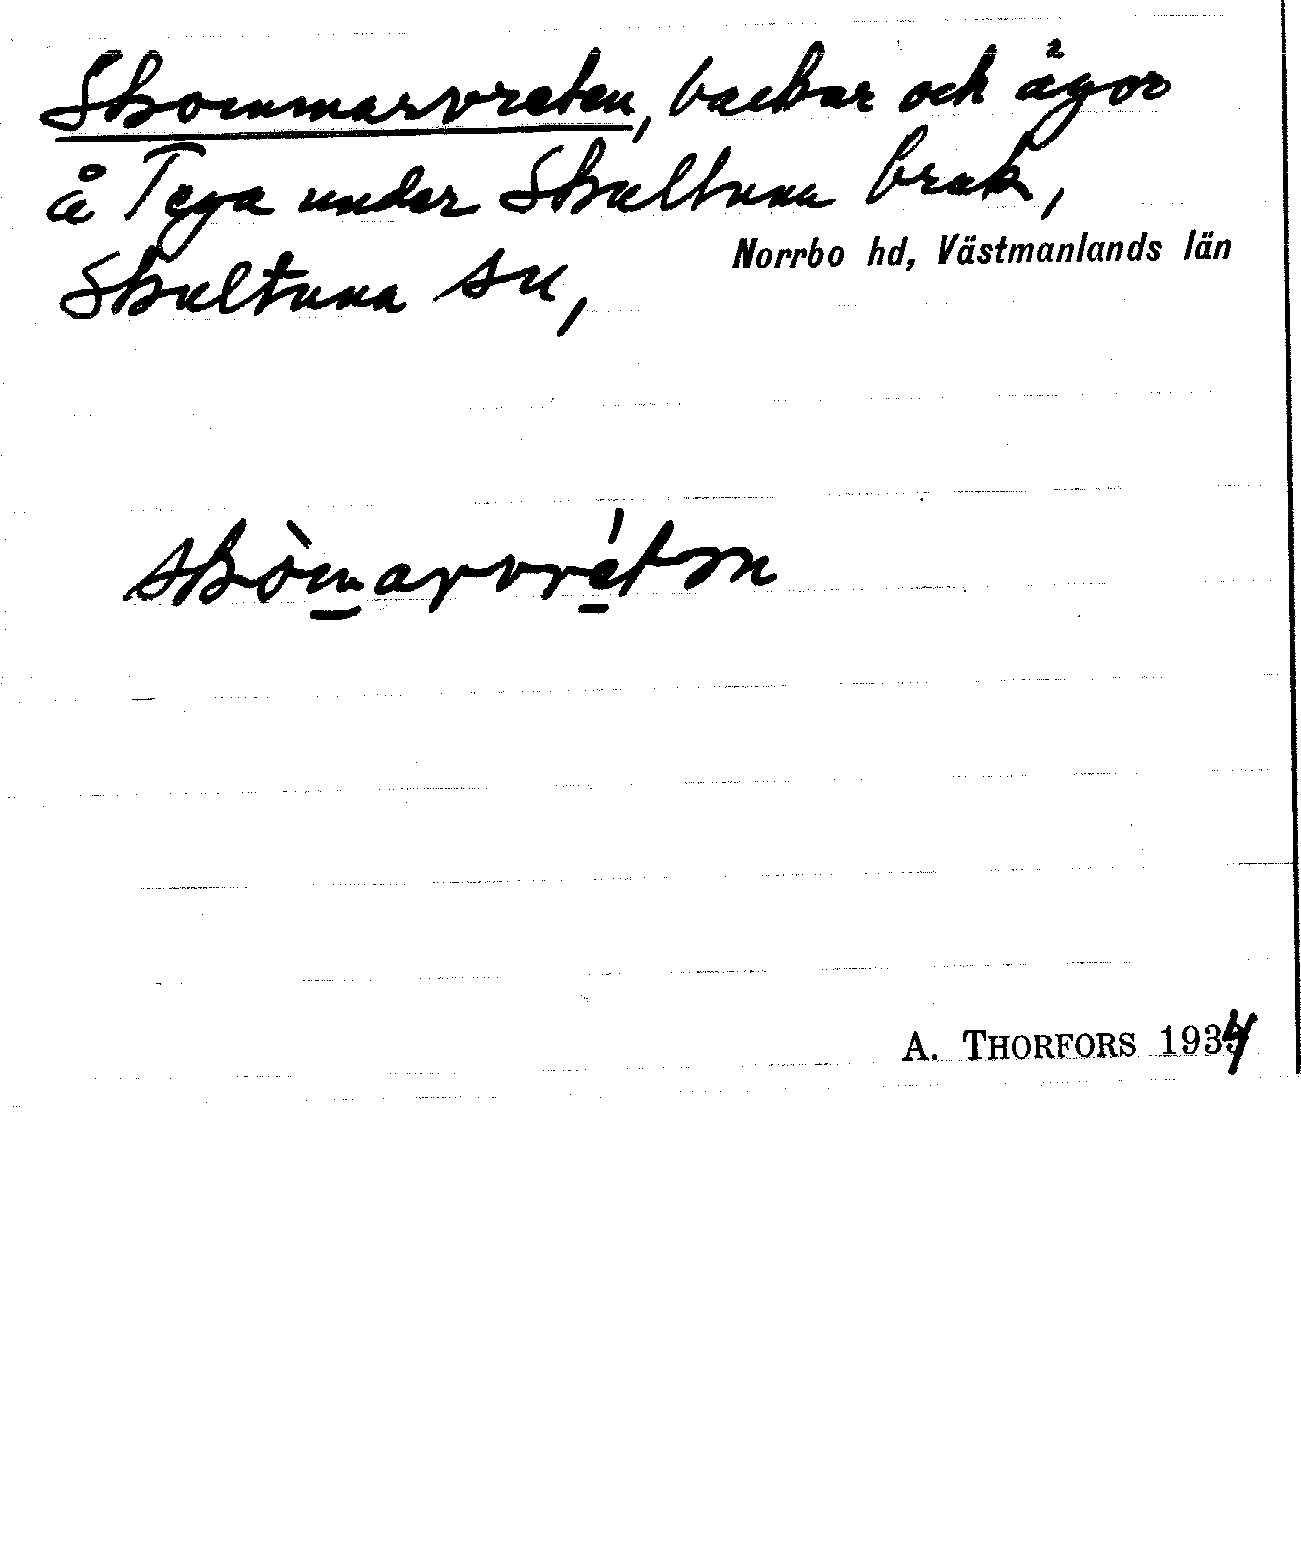 Skommarvreten, backar och ägor
å Tega under Skultuna bruk,
Norrbo hd, Västmanlands län
Skultuna sn,
skòmarvrétən
A. THORFORS 1934